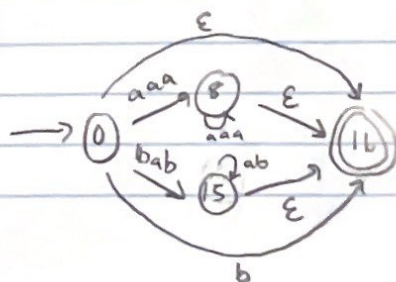 ε
aaa 8 ε
aaa
0 16
bab ab
15 ε
b